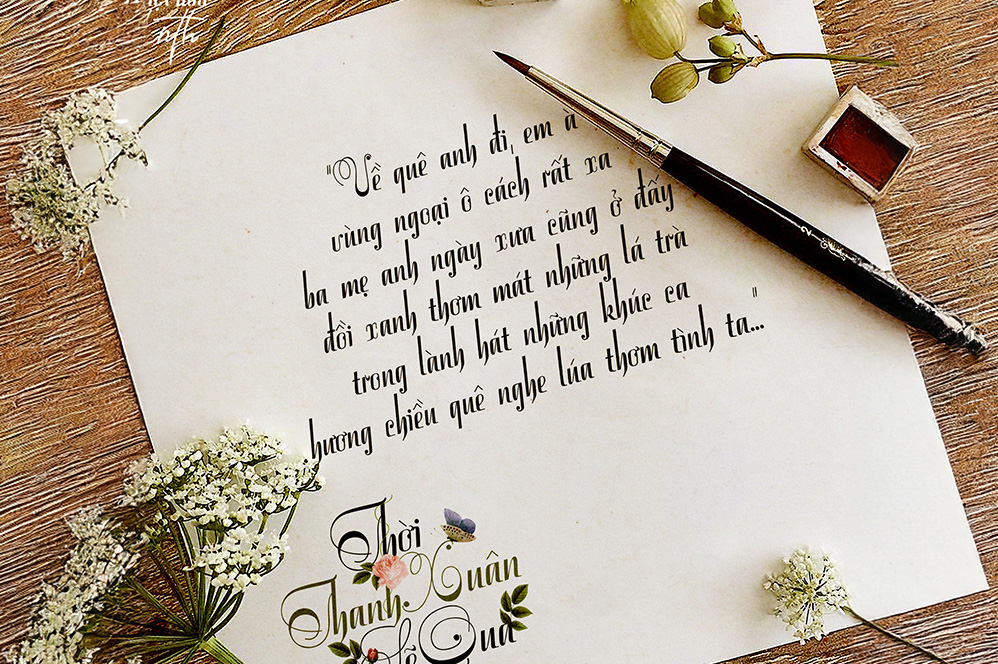 "Về quê anh đi, em à
vùng ngoại ô cách rất xa
ba mẹ anh ngày xưa cũng ở đấy
đồi xanh thơm mát những lá trà
trong lành hát những khúc ca
hương chiều quê nghe lúa thơm tình ta..."
Thời
Thanh Xuân
Sẽ Qua